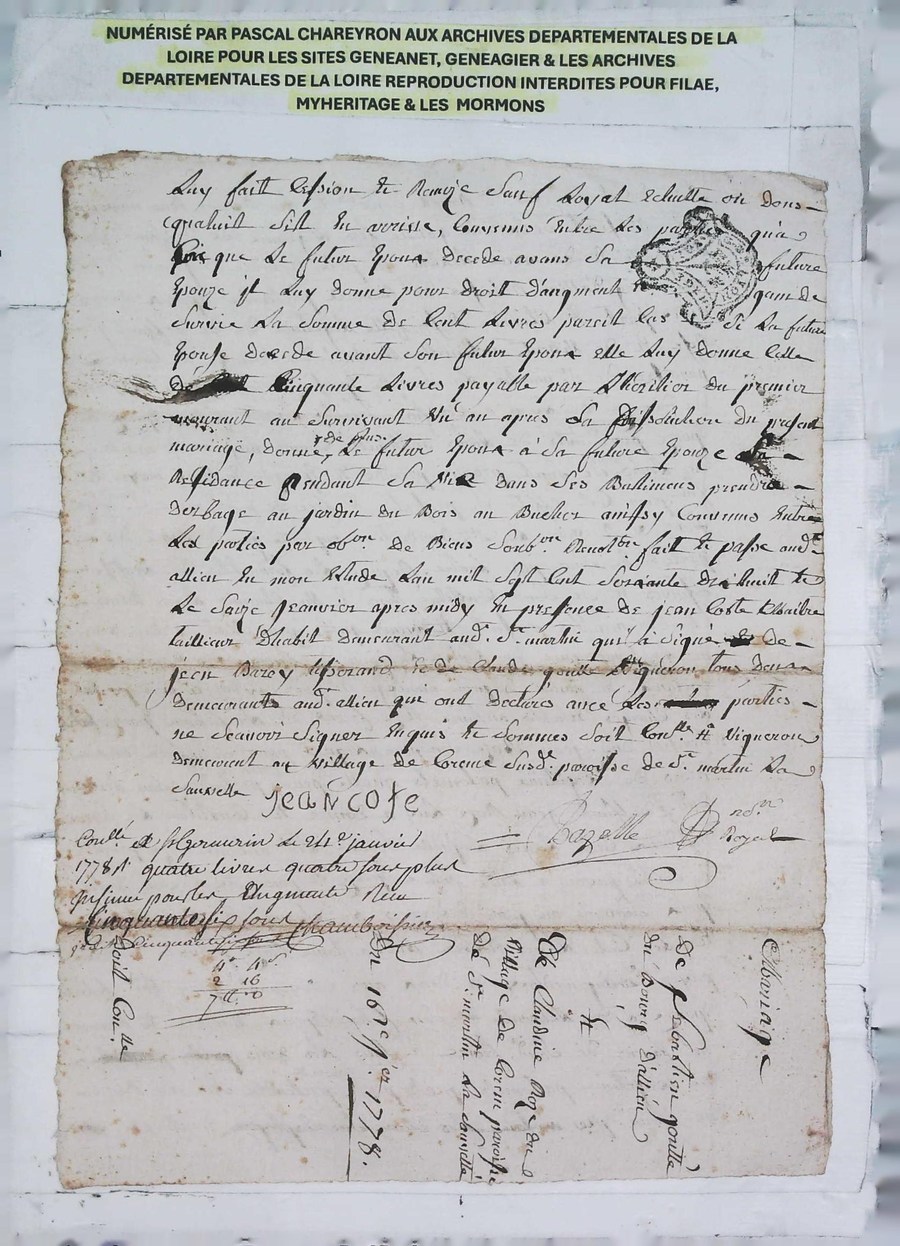 NUMÉRISÉ PAR PASCAL CHAREYRON AUX ARCHIVES DEPARTEMENTALES DE LA
LOIRE POUR LES SITES GENEANET, GENEAGIER & LES ARCHIVES
DEPARTEMENTALES DE LA LOIRE REPRODUCTION INTERDITES POUR FILAE,
MYHERITAGE & LES MORMONS
Luy fait Cession et Remize Sauf Loyal
qualuit Sil En arrive, Convenus Entre Les parties qu'a
que Le futur Epoux decede avans Sa future
Epouze il Luy donne pour droit d'augment gain de
Survie La Somme de Cent Livres pareil Cas Si La future
Epouse decede avant Son futur Epoux elle Luy donne Celle
de Cinquante Livres payable par L'heritier du premier
mourant au Survivant Un an apres la dissolution du present
mariage, donne de plus Le futur Epoux à Sa future Epouze
Residance pendant Sa Vie dans Ses Batimens prendre
derbage au jardin du Bois au Bucher ainssy Convenus Entre
Les parties par obon de Biens Soubon Renoton fait et passe aud.
allieu En mon Etude Lan mil Sept Cent Soixante dix huit et
Le Saize Jeanvier apres midy En presence de jean Coste Maitre
tailleur D'habit demeurant aud. St. martin qui a Signé de
jean Barey tisserand et de Claude goutte Vigneron tous deux
demeurants aud. allieu qui ont declares avec Les parties
ne Scavoir Signer Enquis et Sommes Soit Conlle et Vigneron
demeurent au Village de Coreme Susd. paroisse de St. martin La
Sauvette
jean COSTE
Bazolle
Royal
Conlle a St Germain Le 24e janvier
1778 R quatre livres quatre sous plus
insinué pour les Augments Reçu
Cinquante six sous
Chamboissier
cinquante six sous
4 4
2 16
7 0
Soit Conlle
Du 16e jer 1778.
De Claudine Roze du
Village de Corem paroisse
De St. martin La Sauvetté
et
De Sebastien goutte
du Bourg d'allieu
Mariage